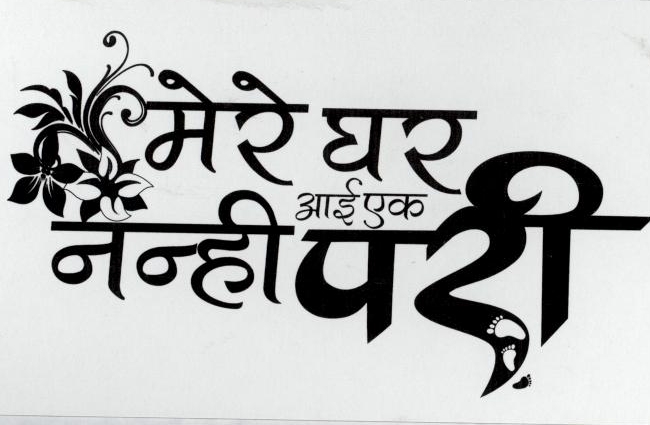 मेरे घर
आई एक
नन्ही परी